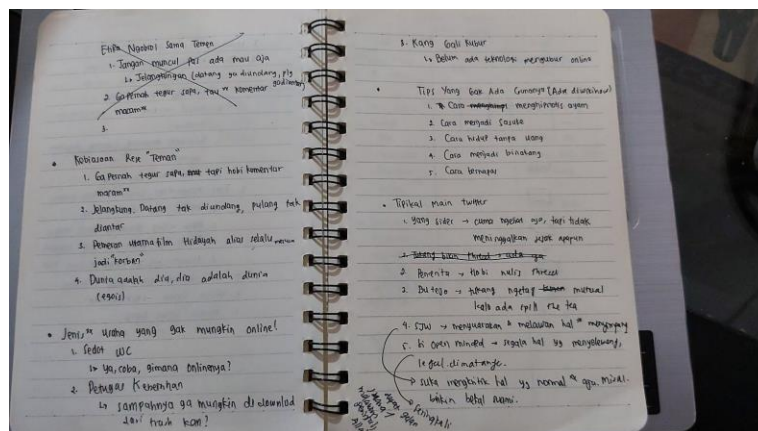 Etika Ngobrol Sama Temen
1. Jangan muncul pas ada mau aja
↳ Jelangkungan (datang ga diundang, plg ga diantar)
2. Ga pernah tegur sapa, tau" komentar macam"
3.
• Kebiasaan Rese "Teman"
1. Ga pernah tegur sapa, tapi hobi komentar
macam"
2. Jelangkung. Datang tak diundang, pulang tak
diantar
3. Pemeran utama film Hidayah alias selalu merasa
jadi "korban"
4. Dunia adalah dia, dia adalah dunia
(egois)
• Jenis" usaha yang gak mungkin online!
1. Sedot WC
↳ Ya, coba, gimana onlinenya?
2. Petugas Kebersihan
↳ sampahnya ga mungkin di download
dari trash kan?
3. Kang Gali Kubur
↳ Belum ada teknologi mengubur online
• Tips Yang Gak Ada Gunanya (Ada diwikihow)
1. Cara menghipnotis ayam
2. Cara menjadi Sasuke
3. Cara hidup tanpa uang
4. Cara menjadi binatang
5. Cara bernapas
• Tipikal main twitter
1. yang sider → cuma ngeliat aja, tapi tidak
meninggalkan jejak apapun
2. Penerita → Hobi nulis thread
3. Bu tejo → tukang ngetag mutual
kalo ada spill the tea
4. SJW → menyuarakan & melawan hal" menyimpang
5. Si open minded → segala hal yg menyeleweng,
legal dimatanya.
→ suka mengkritik hal yg normal" aja. Misal.
bikin bekal suami.
Seringkali
agak geser